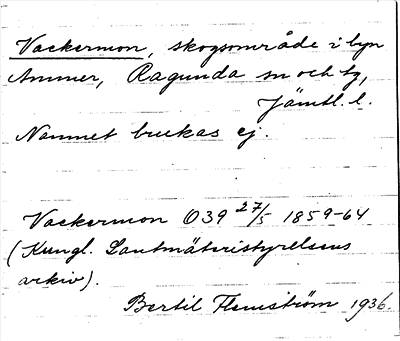 Vackermon, skogsområde i byn
Ammer, Ragunda sn och tg,
Jämtl. l.
Namnet brukas ej.
Vackermon O39 27/5 1859-64
(Kungl. Lantmäteristyrelsens
arkiv).
Bertil Flemström 1936.